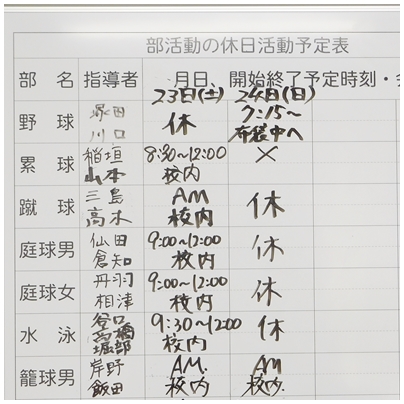 部活動の休日活動予定表
部 名 指導者 月日、開始終了予定時刻・
23日(土) 24日(日)
野 球 塚田 川口 休 7:15~ 布袋中へ
累 球 稲垣 山本 8:30~12:00 校内 ×
蹴 球 三島 高木 AM 校内 休
庭球男 仙田 倉知 9:00~12:00 校内 休
庭球女 丹羽 相津 9:00~12:00 校内 休
水 泳 谷口 堀部 9:30~12:00 校内 休
籠球男 岸野 飯田 AM. 校内 AM 校内.